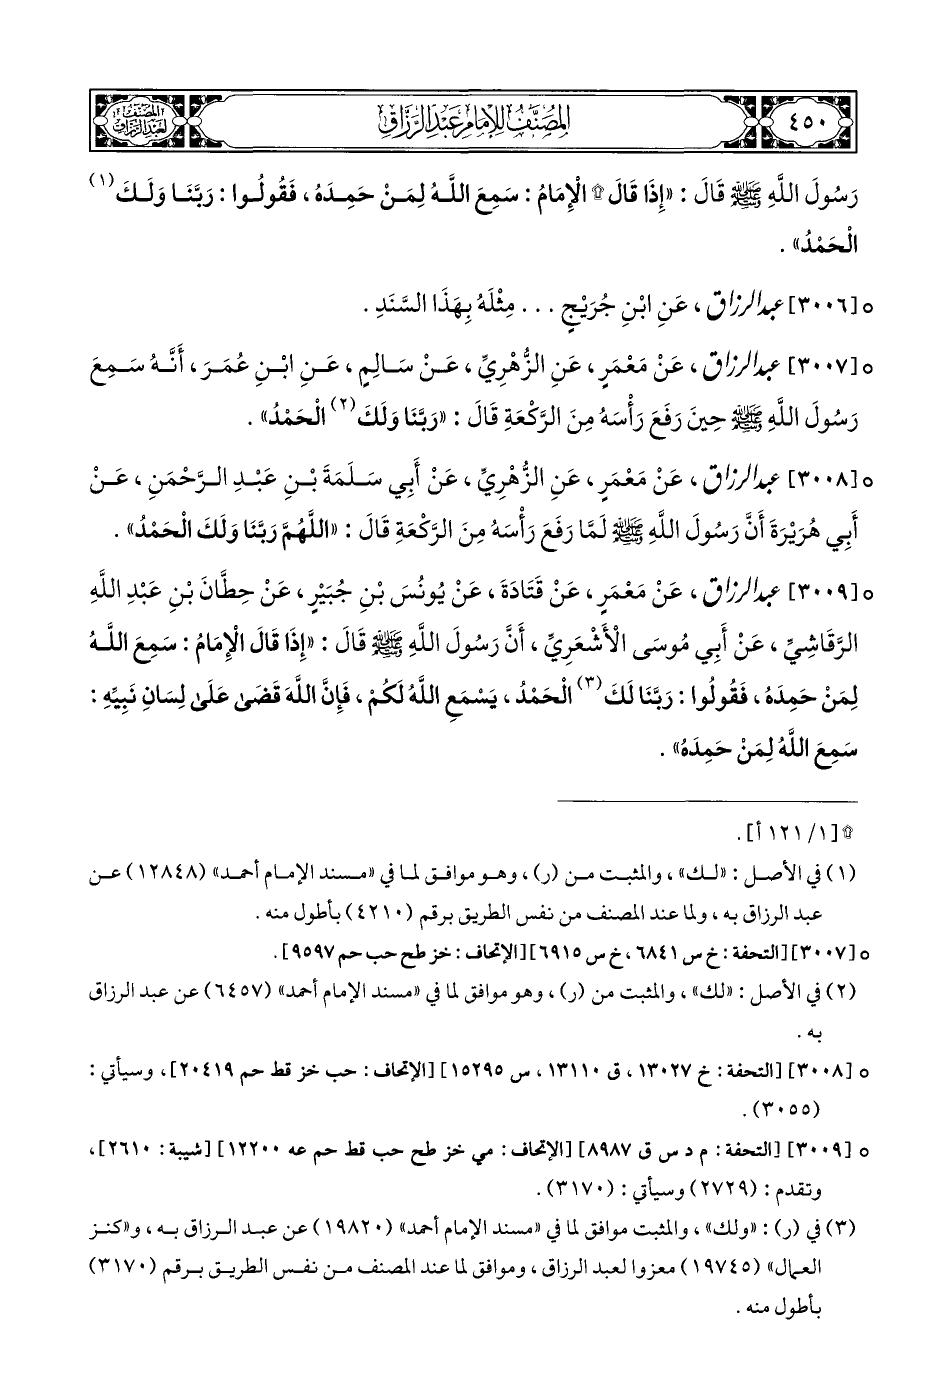 ٤٥٠
المصنف للإمام عبد الرزاق
المصنف
لعبد الرزاق
رَسُولَ اللَّهِ ﷺ قَالَ : «إِذَا قَالَ ۩ الْإِمَامُ : سَمِعَ اللَّهُ لِمَنْ حَمِدَهُ ، فَقُولُوا : رَبَّنَا وَلَكَ (١)
الْحَمْدُ» .
○ [٣٠٠٦] عبد الرزاق ، عَنِ ابْنِ جُرَيْجٍ . . . مِثْلَهُ بِهَذَا السَّنَدِ .
○ [٣٠٠٧] عبد الرزاق ، عَنْ مَعْمَرٍ ، عَنِ الزُّهْرِيِّ ، عَنْ سَالِمٍ ، عَنِ ابْنِ عُمَرَ ، أَنَّهُ سَمِعَ
رَسُولَ اللَّهِ ﷺ حِينَ رَفَعَ رَأْسَهُ مِنَ الرَّكْعَةِ قَالَ : «رَبَّنَا وَلَكَ (٢) الْحَمْدُ» .
○ [٣٠٠٨] عبد الرزاق ، عَنْ مَعْمَرٍ ، عَنِ الزُّهْرِيِّ ، عَنْ أَبِي سَلَمَةَ بْنِ عَبْدِ الرَّحْمَنِ ، عَنْ
أَبِي هُرَيْرَةَ أَنَّ رَسُولَ اللَّهِ ﷺ لَمَّا رَفَعَ رَأْسَهُ مِنَ الرَّكْعَةِ قَالَ : «اللَّهُمَّ رَبَّنَا وَلَكَ الْحَمْدُ» .
○ [٣٠٠٩] عبد الرزاق ، عَنْ مَعْمَرٍ ، عَنْ قَتَادَةَ ، عَنْ يُونُسَ بْنِ جُبَيْرٍ ، عَنْ حِطَّانَ بْنِ عَبْدِ اللَّهِ
الرَّقَاشِيِّ ، عَنْ أَبِي مُوسَى الْأَشْعَرِيِّ ، أَنَّ رَسُولَ اللَّهِ ﷺ قَالَ : «إِذَا قَالَ الْإِمَامُ : سَمِعَ اللَّهُ
لِمَنْ حَمِدَهُ ، فَقُولُوا : رَبَّنَا لَكَ (٣) الْحَمْدُ ، يَسْمَعِ اللَّهُ لَكُمْ ، فَإِنَّ اللَّهَ قَضَى عَلَى لِسَانِ نَبِيِّهِ :
سَمِعَ اللَّهُ لِمَنْ حَمِدَهُ» .
۩ [١/ ١٢١ أ] .
(١) في الأصل : «لك» ، والمثبت من (ر) ، وهو موافق لما في «مسند الإمام أحمد» (١٢٨٤٨) عن
عبد الرزاق به ، ولما عند المصنف من نفس الطريق برقم (٤٢١٠) بأطول منه .
○ [٣٠٠٧] [التحفة : خ س ٦٨٤١ ، خ س ٦٩١٥] [الإتحاف : خز طح حب حم ٩٥٩٧] .
(٢) في الأصل : «لك» ، والمثبت من (ر) ، وهو موافق لما في «مسند الإمام أحمد» (٦٤٥٧) عن عبد الرزاق
به .
○ [٣٠٠٨] [التحفة : خ ١٣٠٢٧ ، ق ١٣١١٠ ، س ١٥٢٩٥] [الإتحاف : حب خز قط حم ٢٠٤١٩] ، وسيأتي :
(٣٠٥٥) .
○ [٣٠٠٩] [التحفة : م د س ق ٨٩٨٧] [الإتحاف : مي خز طح حب قط حم عه ١٢٢٠٠] [شيبة : ٢٦١٠] ،
وتقدم : (٢٧٢٩) وسيأتي : (٣١٧٠) .
(٣) في (ر) : «ولك» ، والمثبت موافق لما في «مسند الإمام أحمد» (١٩٨٢٠) عن عبد الرزاق به ، و«كنز
العمال» (١٩٧٤٥) معزوا لعبد الرزاق ، وموافق لما عند المصنف من نفس الطريق برقم (٣١٧٠)
بأطول منه .